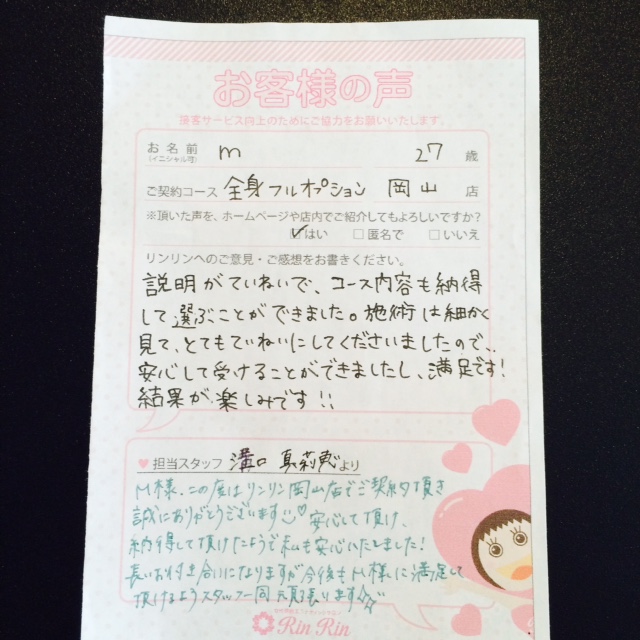 お客様の声
接客サービス向上のためにご協力をお願いいたします。
お名前 m 27 歳
(イニシャル可)
ご契約コース 全身フルオプション 岡山 店
※頂いた声を、ホームページや店内でご紹介してもよろしいですか?
☑はい □匿名で □いいえ
リンリンへのご意見・ご感想をお書きください。
説明がていねいで、コース内容も納得
して選ぶことができました。施術は細かく
見て、とてもていねいにしてくださいましたので、
安心して受けることができましたし、満足です!
結果が楽しみです!!
♥ 担当スタッフ 溝口 真莉恵より
M様、この度はリンリン岡山店でご契約頂き
誠にありがとうございます♡ 安心して頂け、
納得して頂けたようで私も安心いたしました!
長いお付き合いになりますが今後もM様に満足して
頂けるようスタッフ一同頑張ります☆
RinRin